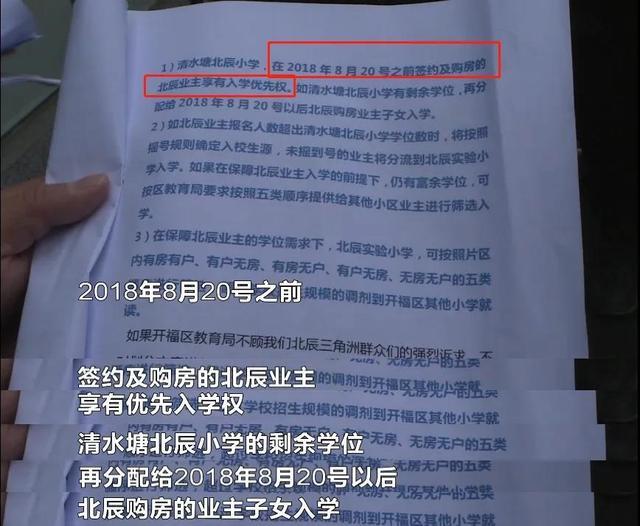 1）清水塘北辰小学，在2018年8月20号之前签约及购房的
北辰业主享有入学优先权。如清水塘北辰小学有剩余学位，再分
配给2018年8月20号以后北辰购房业主子女入学。
2）如北辰业主报名人数超出清水塘北辰小学学位数时，将按照
摇号规则确定入校生源，未摇到号的业主将分流到北辰实验小
学入学。如果在保障北辰业主入学的前提下，仍有富余学位，可
按区教育局要求按照五类顺序提供给其他小区业主进行筛选入
学。
3）在保障北辰业主的学位需求下，北辰实验小学，可按照片区
内有房有户、有户无房、有房无户、无房无户的五类
规模的调剂到开福区其他小学就
读。
2018年8月20号之前
如果开福区教育局不顾我们北辰三角洲群众们的强烈诉求，不
签约及购房的北辰业主
享有优先入学权
学校招生规模的调剂到开福区其他小学就
清水塘北辰小学的剩余学位
再分配给2018年8月20号以后
北辰购房的业主子女入学